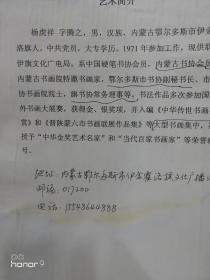 艺术简介
杨虎祥 字腾之，男，汉族，内蒙古鄂尔多斯市伊金
洛旗人，中共党员，大专学历。1971年参加工作，现供职
伊旗文化广电局。系中国硬笔书协会员，内蒙古书协会员
内蒙古书画院特邀书画家，鄂尔多斯市书协副秘书长，市
协书画院院士，旗书协常务理事等。书法作品多次参加国
外书画大展赛，获得金、银奖项，并入编《中华传世书画
赏》和《晋陕蒙六市书画联展作品集》等大型书画集中，
授于“中华金奖艺术名家”和“当代百家书画家”等荣誉称
号。
地址：内蒙古鄂尔多斯市伊金霍洛旗文化广播
邮编：017200
电话：
honor 9